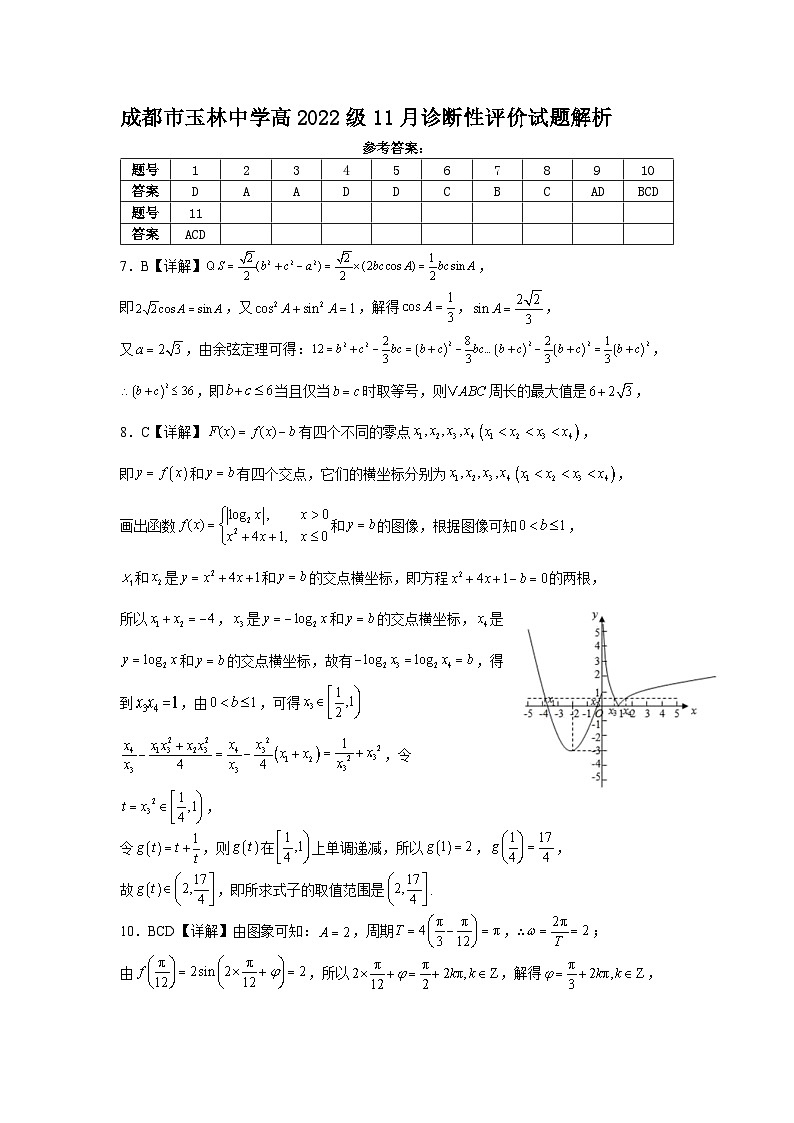 成都市玉林中学高 2022 级 11 月诊断性评价试题解析
参考答案：
题号 1 2 3 4 5 6 7 8 9 10
答案 D A A D D C B C AD BCD
题号 11
答案 ACD
7．B【详解】Q S = √2/2 (b² + c² − a²) = √2/2 × (2bc cos A) = 1/2 bc sin A，
即 2√2 cos A = sin A，又 cos² A + sin² A = 1，解得 cos A = 1/3，sin A = 2√2/3，
又 a = 2√3，由余弦定理可得：12 = b² + c² − 2/3 bc = (b + c)² − 8/3 bc… (b + c)² − 2/3 (b + c)² = 1/3 (b + c)²，
∴ (b + c)² ≤ 36，即 b + c ≤ 6 当且仅当 b = c 时取等号，则 ∨ABC 周长的最大值是 6 + 2√3，
8．C【详解】F(x) = f(x) − b 有四个不同的零点 x₁, x₂, x₃, x₄ (x₁ < x₂ < x₃ < x₄)，
即 y = f(x) 和 y = b 有四个交点，它们的横坐标分别为 x₁, x₂, x₃, x₄ (x₁ < x₂ < x₃ < x₄)，
画出函数 f(x) = { |log₂ x|, x > 0 ; x² + 4x + 1, x ≤ 0 和 y = b 的图像，根据图像可知 0 < b ≤ 1，
x₁ 和 x₂ 是 y = x² + 4x + 1 和 y = b 的交点横坐标，即方程 x² + 4x + 1 − b = 0 的两根，
所以 x₁ + x₂ = −4，x₃ 是 y = − log₂ x 和 y = b 的交点横坐标，x₄ 是
y = log₂ x 和 y = b 的交点横坐标，故有 − log₂ x₃ = log₂ x₄ = b，得
到 x₃x₄ = 1，由 0 < b ≤ 1，可得 x₃ ∈ [1/2, 1)
x₄/x₃ − (x₁x₃² + x₂x₃²)/4 = x₄/x₃ − x₃²/4 (x₁ + x₂) = 1/x₃² + x₃²，令
t = x₃² ∈ [1/4, 1)，
令 g(t) = t + 1/t，则 g(t) 在 [1/4, 1) 上单调递减，所以 g(1) = 2，g(1/4) = 17/4，
故 g(t) ∈ (2, 17/4]，即所求式子的取值范围是 (2, 17/4].
y
5
4
3
2
1
-5 -4 -3 -2 -1 O x₃ 1 x₄ 2 3 4 5 x
x₁ x₂
-1
-2
-3
-4
-5
10．BCD【详解】由图象可知：A = 2，周期 T = 4(π/3 − π/12) = π，∴ ω = 2π/T = 2；
由 f(π/12) = 2sin(2 × π/12 + φ) = 2，所以 2 × π/12 + φ = π/2 + 2kπ, k ∈ Z，解得 φ = π/3 + 2kπ, k ∈ Z，